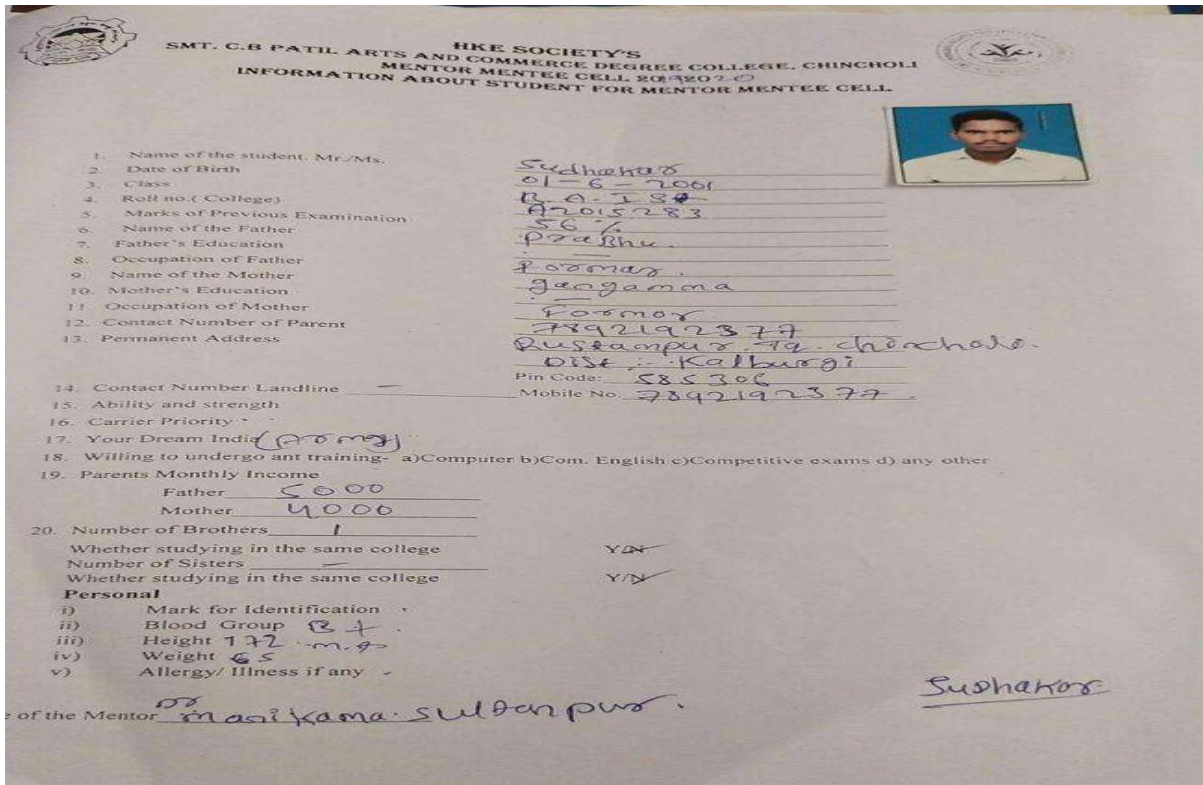 HKE SOCIETY'S
SMT. C.B PATIL ARTS AND COMMERCE DEGREE COLLEGE, CHINCHOLI
MENTOR MENTEE CELL 2019 2020
INFORMATION ABOUT STUDENT FOR MENTOR MENTEE CELL
1. Name of the student. Mr./Ms. Sudhakar
2. Date of Birth 01-6-2001
3. Class B.A. ISt
4. Roll no.( College) A2015283
5. Marks of Previous Examination 56 %
6. Name of the Father PraBhu.
7. Father's Education —
8. Occupation of Father Formar.
9. Name of the Mother gangamma
10. Mother's Education —
11. Occupation of Mother Formor
12. Contact Number of Parent 7892192377
13. Permanent Address Rustampur. Tq. chincholi.
Dist :- Kalburgi
Pin Code: 585306
14. Contact Number Landline — Mobile No. 7892192377.
15. Ability and strength
16. Carrier Priority
17. Your Dream India (Army)
18. Willing to undergo ant training- a)Computer b)Com. English c)Competitive exams d) any other
19. Parents Monthly Income
Father 5000
Mother 4000
20. Number of Brothers 1
Whether studying in the same college Y/N
Number of Sisters —
Whether studying in the same college Y/N
Personal
i) Mark for Identification
ii) Blood Group B+.
iii) Height 172
iv) Weight 65
v) Allergy/ Illness if any -
Sudhakar
of the Mentor manikama. Sultanpur.